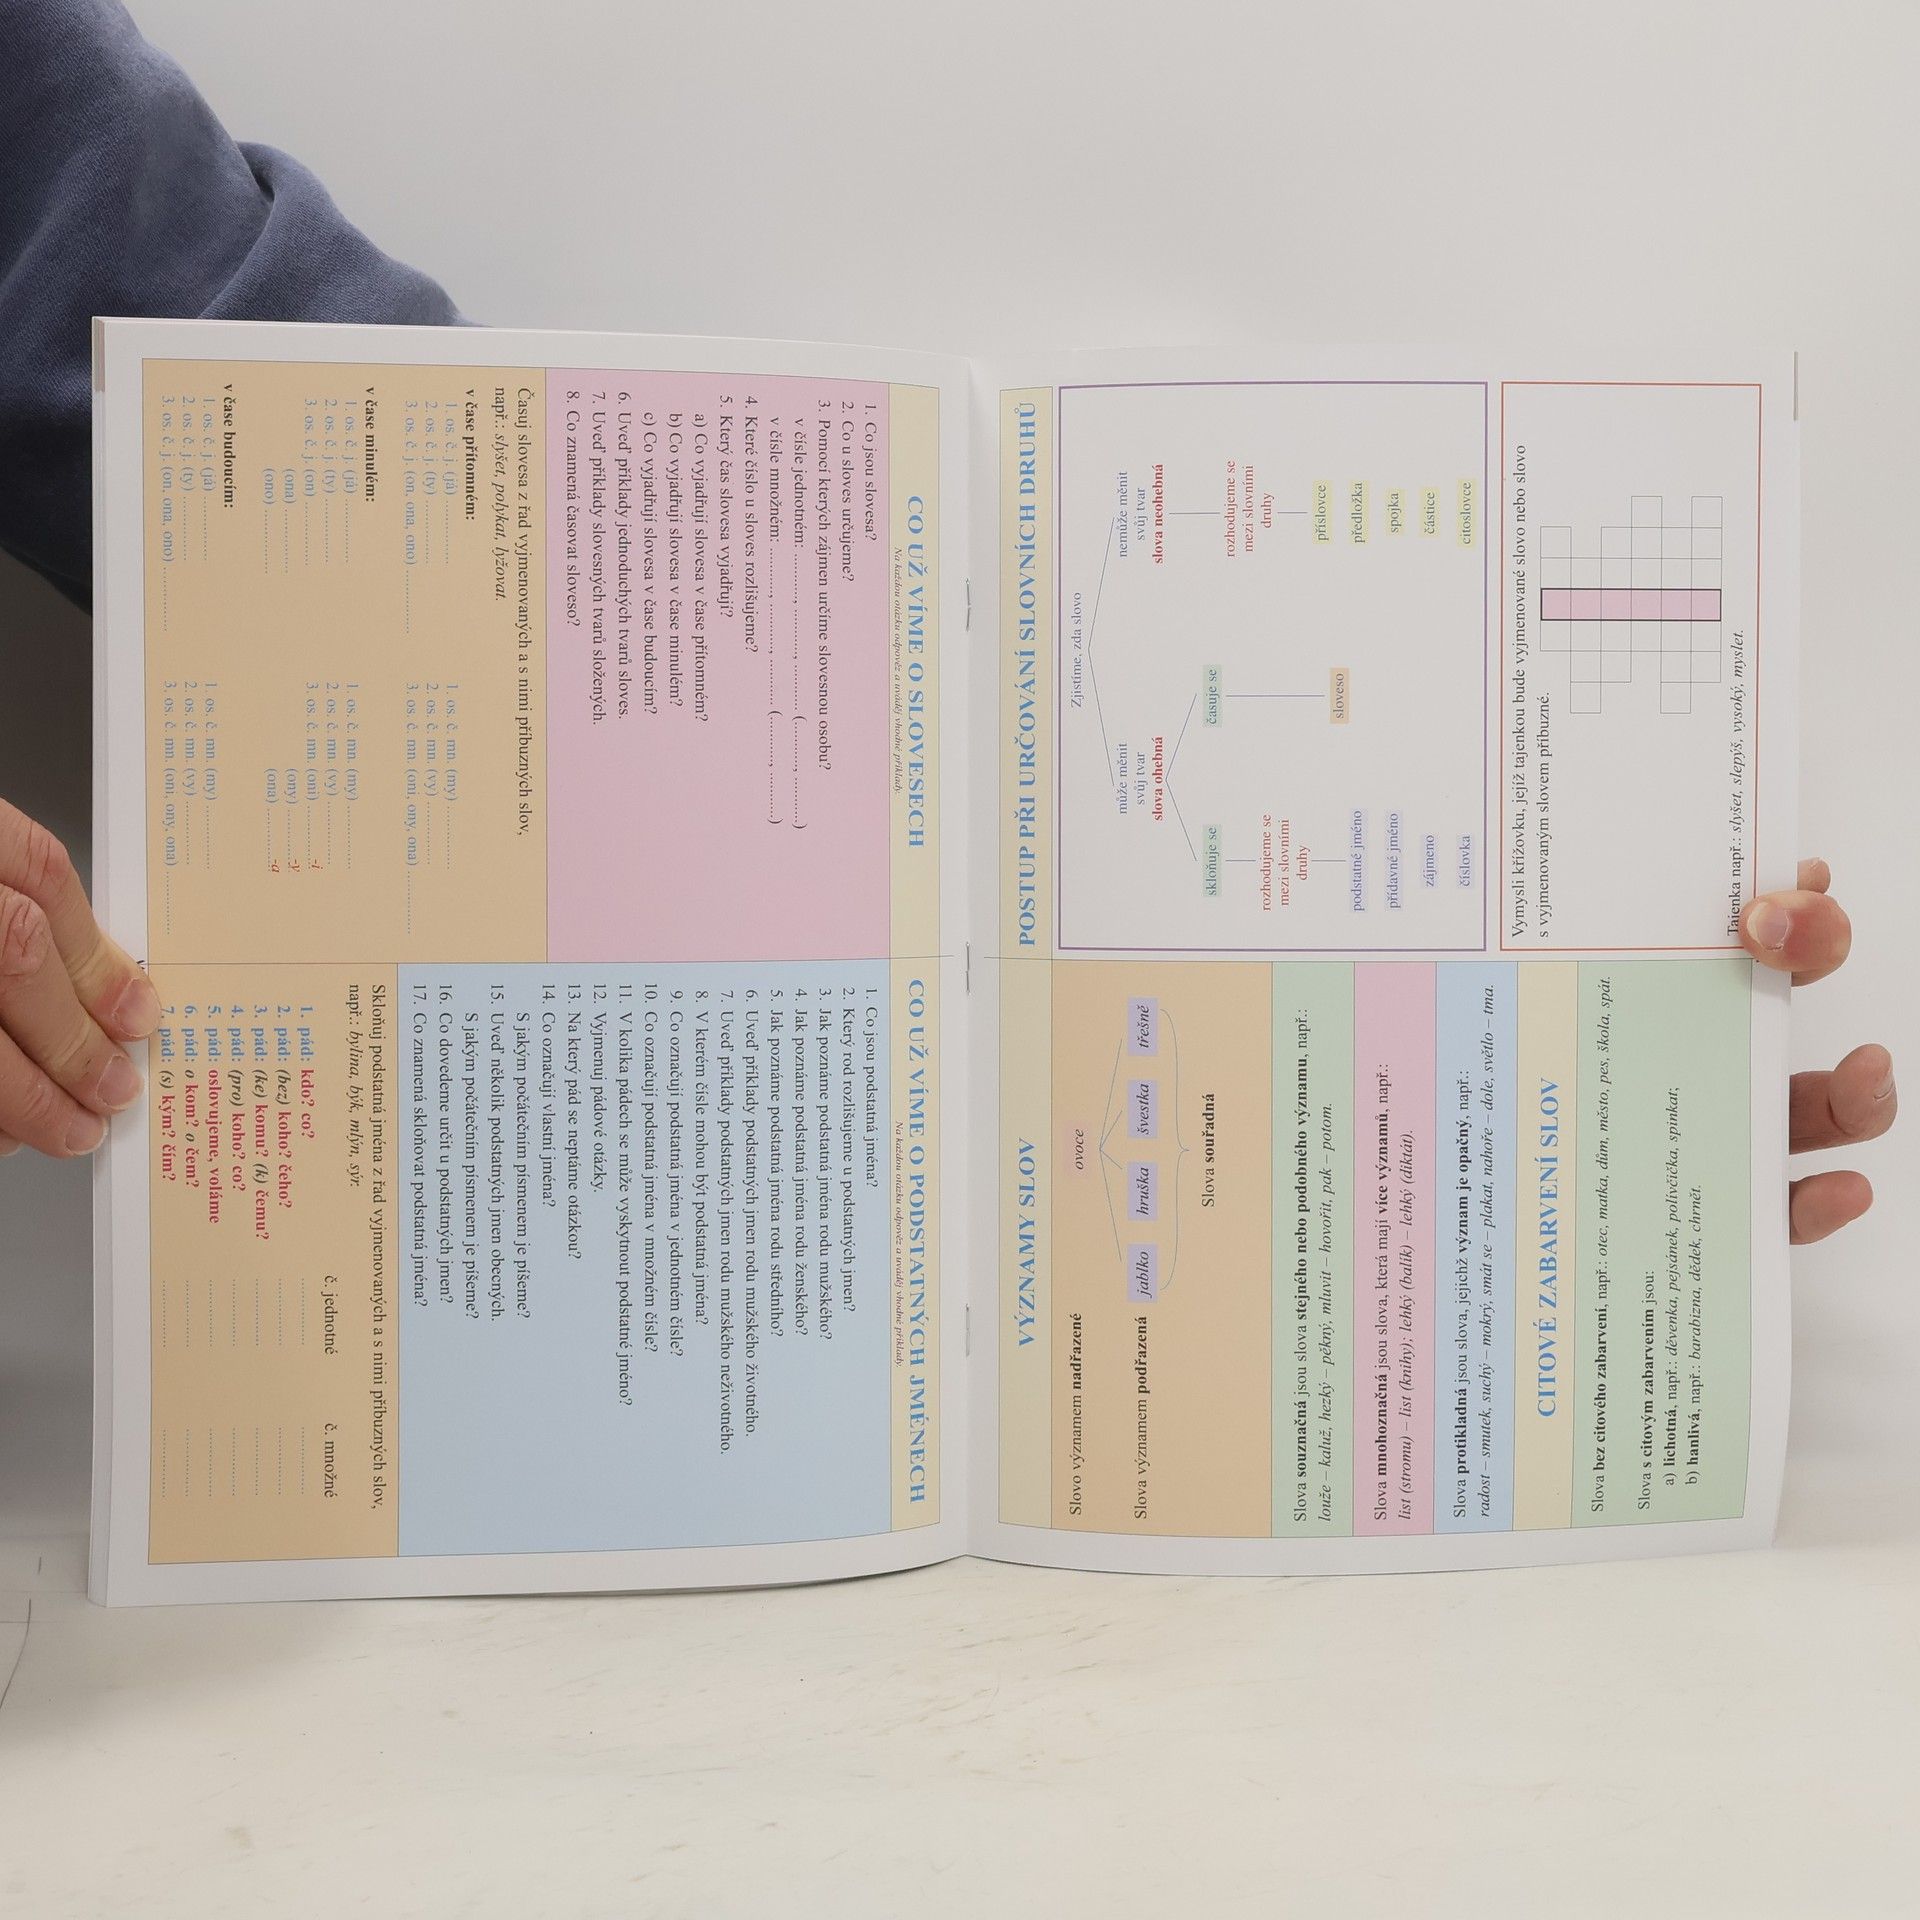 CO UŽ VÍME O SLOVESECH
Na každou otázku odpověz a uváděj vhodné příklady.
1. Co jsou slovesa?
2. Co u sloves určujeme?
3. Pomocí kterých zájmen určíme slovesnou osobu?
v čísle jednotném: .........., .........., .......... (.........., ..........)
v čísle množném: .........., .........., .......... (.........., ..........)
4. Které číslo u sloves rozlišujeme?
5. Který čas slovesa vyjadřují?
a) Co vyjadřují slovesa v čase přítomném?
b) Co vyjadřují slovesa v čase minulém?
c) Co vyjadřují slovesa v čase budoucím?
6. Uveď příklady jednoduchých tvarů sloves.
7. Uveď příklady slovesných tvarů složených.
8. Co znamená časovat sloveso?
Časuj slovesa z řad vyjmenovaných a s nimi příbuzných slov,
např.: slyšet, polykat, lyžovat.
v čase přítomném:
1. os. č. j. (já) ............... 1. os. č. mn. (my) ...............
2. os. č. j. (ty) ............... 2. os. č. mn. (vy) ...............
3. os. č. j. (on, ona, ono) ............... 3. os. č. mn. (oni, ony, ona) ...............
v čase minulém:
1. os. č. j. (já) ............... 1. os. č. mn. (my) ...............
2. os. č. j. (ty) ............... 2. os. č. mn. (vy) ...............
3. os. č. j. (on) ............... 3. os. č. mn. (oni) ...............-i
(ona) ............... (ony) ...............-y
(ono) ............... (ona) ...............-a
v čase budoucím:
1. os. č. j. (já) ............... 1. os. č. mn. (my) ...............
2. os. č. j. (ty) ............... 2. os. č. mn. (vy) ...............
3. os. č. j. (on, ona, ono) ............... 3. os. č. mn. (oni, ony, ona) ...............
CO UŽ VÍME O PODSTATNÝCH JMÉNECH
Na každou otázku odpověz a uváděj vhodné příklady.
1. Co jsou podstatná jména?
2. Který rod rozlišujeme u podstatných jmen?
3. Jak poznáme podstatná jména rodu mužského?
4. Jak poznáme podstatná jména rodu ženského?
5. Jak poznáme podstatná jména rodu středního?
6. Uveď příklady podstatných jmen rodu mužského životného.
7. Uveď příklady podstatných jmen rodu mužského neživotného.
8. V kterém čísle mohou být podstatná jména?
9. Co označují podstatná jména v jednotném čísle?
10. Co označují podstatná jména v množném čísle?
11. V kolika pádech se může vyskytnout podstatné jméno?
12. Vyjmenuj pádové otázky.
13. Na který pád se neptáme otázkou?
14. Co označují vlastní jména?
S jakým počátečním písmenem je píšeme?
15. Uveď několik podstatných jmen obecných.
S jakým počátečním písmenem je píšeme?
16. Co dovedeme určit u podstatných jmen?
17. Co znamená skloňovat podstatná jména?
Skloňuj podstatná jména z řad vyjmenovaných a s nimi příbuzných slov,
např.: bylina, býk, mlýn, sýr.
č. jednotné č. množné
1. pád: kdo? co? ............... ...............
2. pád: (bez) koho? čeho? ............... ...............
3. pád: (ke) komu? (k) čemu? ............... ...............
4. pád: (pro) koho? co? ............... ...............
5. pád: oslovujeme, voláme ............... ...............
6. pád: o kom? o čem? ............... ...............
7. pád: (s) kým? čím? ............... ...............
VÝZNAMY SLOV
Slovo významem nadřazené ovoce
Slova významem podřazená jablko hruška švestka třešně
Slova souřadná
Slova souznačná jsou slova stejného nebo podobného významu, např.:
louže – kaluž, hezký – pěkný, mluvit – hovořit, pak – potom.
Slova mnohoznačná jsou slova, která mají více významů, např.:
list (stromu) – list (knihy); lehký (balík) – lehký (diktát).
Slova protikladná jsou slova, jejichž význam je opačný, např.:
radost – smutek, suchý – mokrý, smát se – plakat, nahoře – dole, světlo – tma.
CITOVÉ ZABARVENÍ SLOV
Slova bez citového zabarvení, např.: otec, matka, dům, město, pes, škola, spát.
Slova s citovým zabarvením jsou:
a) lichotná, např.: děvenka, pejsánek, polívčička, spinkat;
b) hanlivá, např.: barabizna, dědek, chrnět.
POSTUP PŘI URČOVÁNÍ SLOVNÍCH DRUHŮ
Zjistíme, zda slovo
může měnit nemůže měnit
svůj tvar svůj tvar
slova ohebná slova neohebná
skloňuje se časuje se
rozhodujeme se rozhodujeme se
mezi slovními mezi slovními
druhy druhy
sloveso
podstatné jméno příslovce
přídavné jméno předložka
zájmeno spojka
číslovka částice
citoslovce
Vymysli křížovku, jejíž tajenkou bude vyjmenované slovo nebo slovo
s vyjmenovaným slovem příbuzné.
Tajenka např.: slyšet, slepýš, vysoký, myslet.